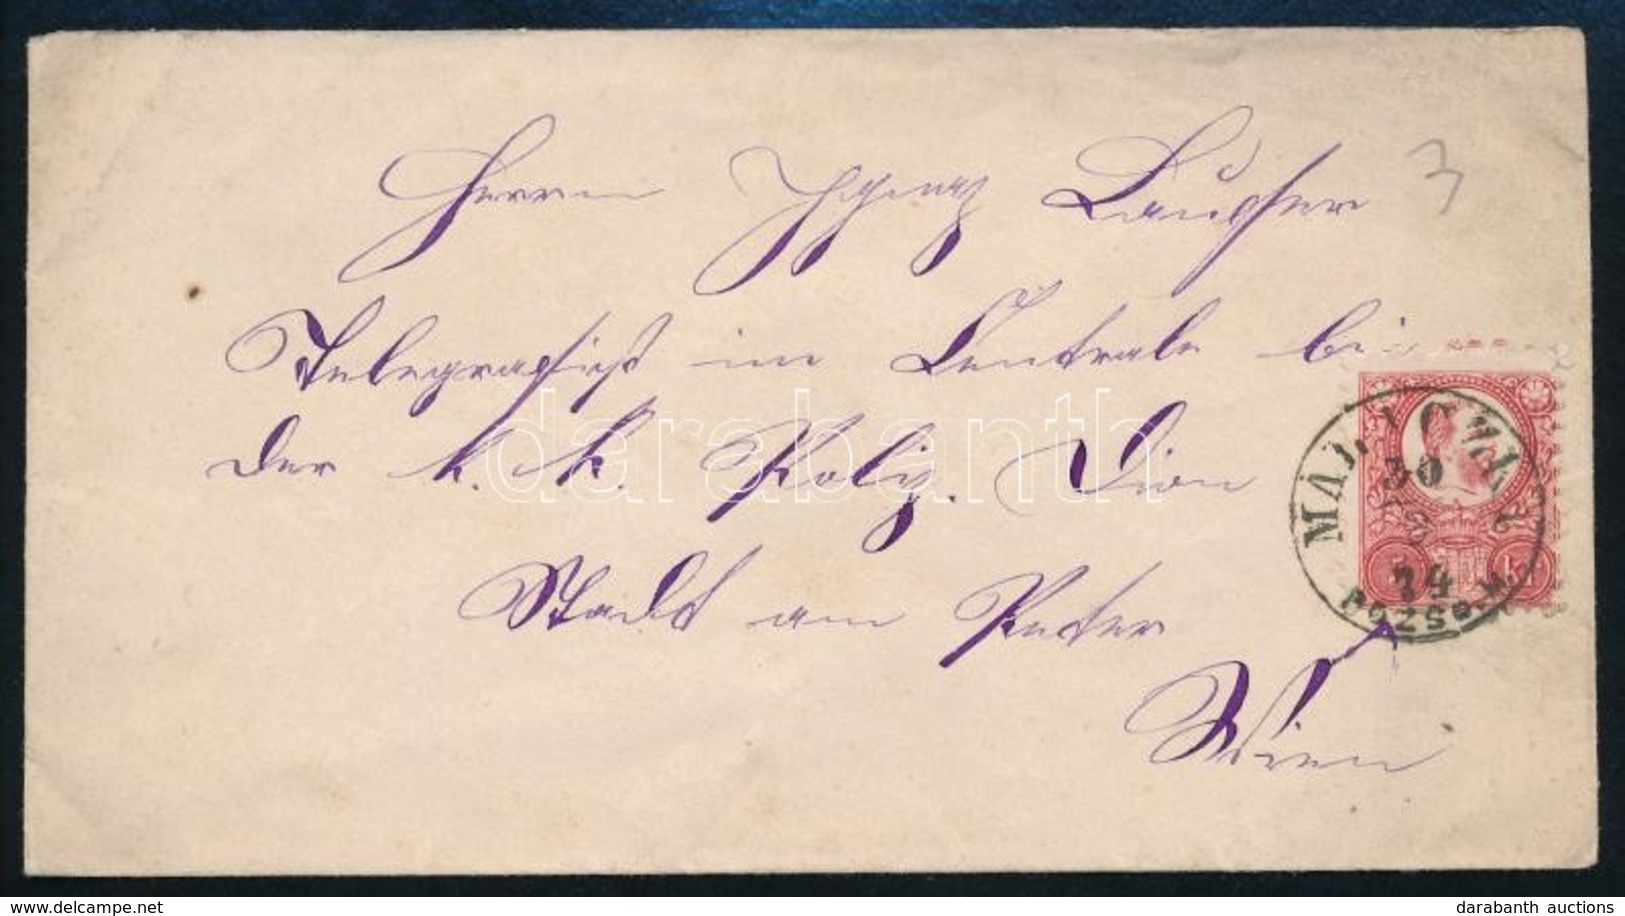 3
Herrn Ignaz
Telegrafist im Centrale bei
der k. k. Poliz. Dion
Stadt am Peter
Wien
MALACZKA
30
74
POZSO. M.
kr
darabanth
delcampe.net
darabanth auctions